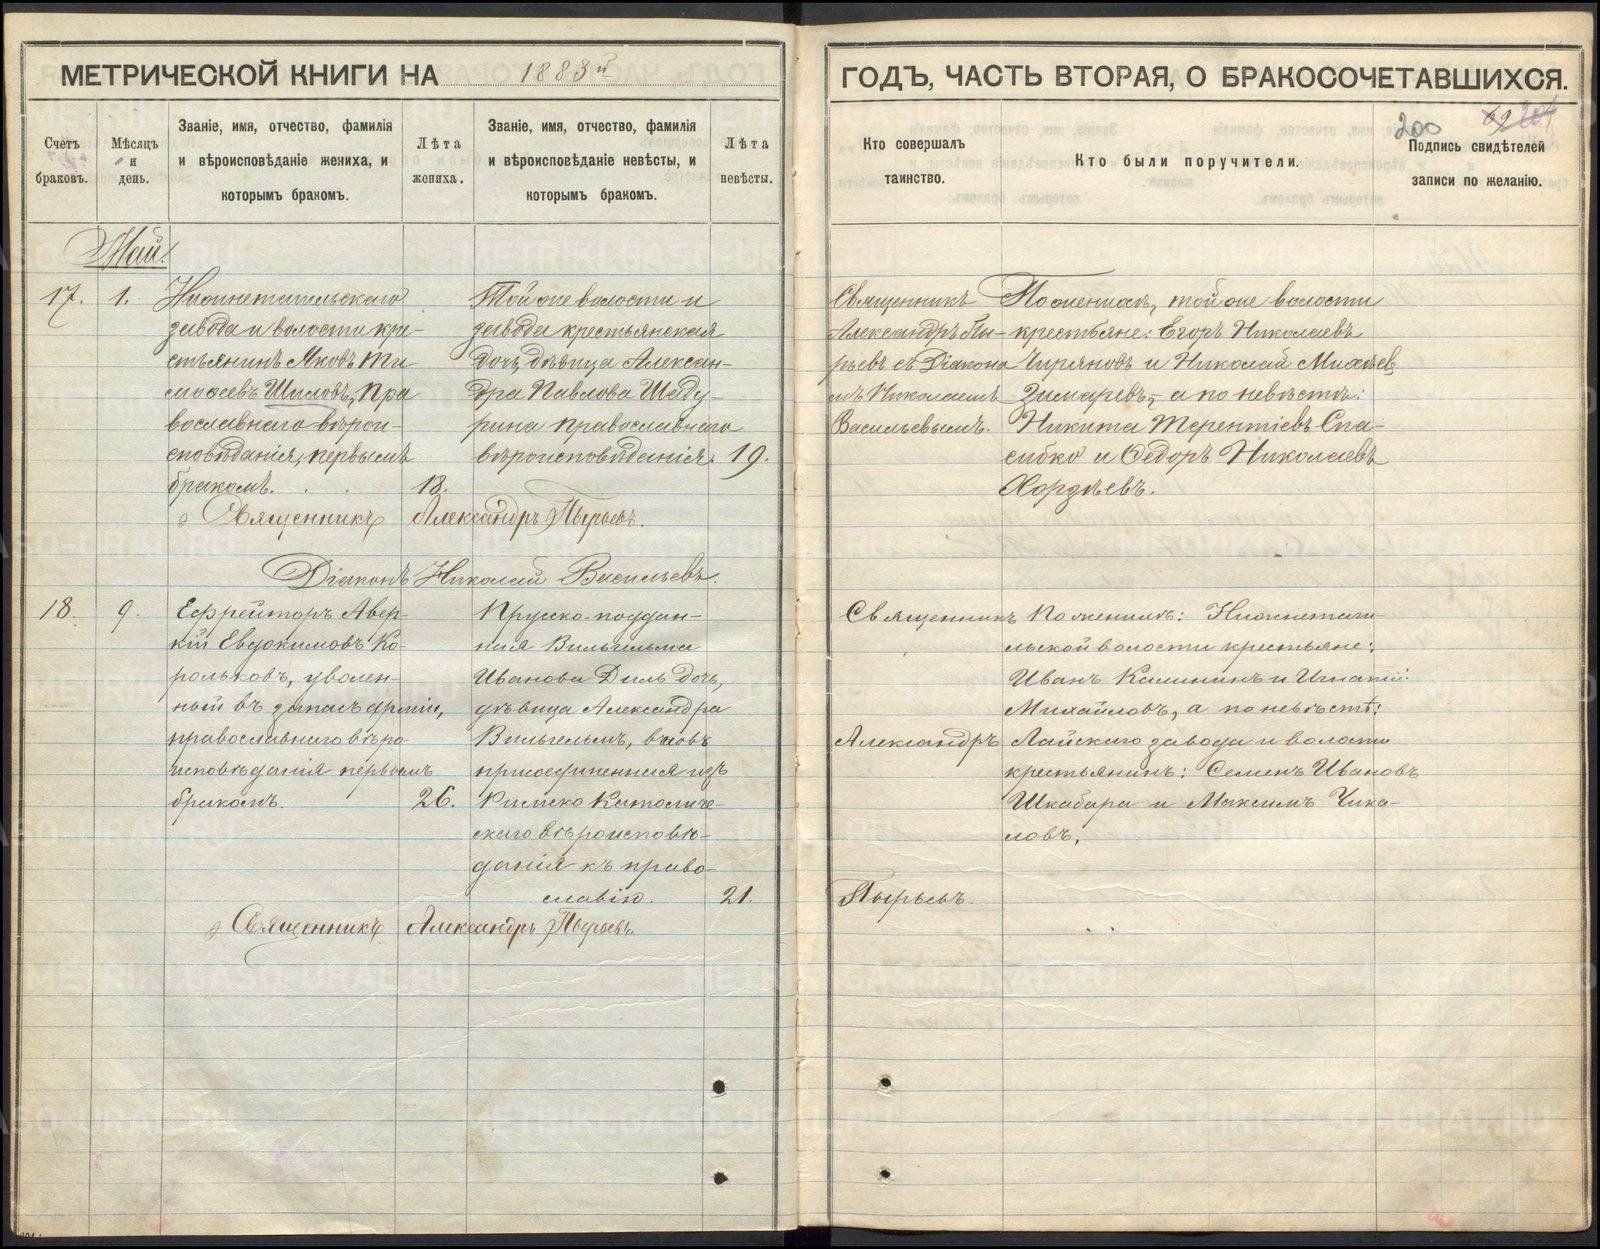 МЕТРИЧЕСКОЙ КНИГИ НА 1883й ГОДЪ, ЧАСТЬ ВТОРАЯ, О БРАКОСОЧЕТАВШИХСЯ.
200
69
Счетъ браковъ.
Мѣсяцъ и день.
Званіе, имя, отчество, фамилія
и вѣроисповѣданіе жениха, и
которымъ бракомъ.
Лѣта жениха.
Званіе, имя, отчество, фамилія
и вѣроисповѣданіе невѣсты, и
которымъ бракомъ.
Лѣта невѣсты.
Кто совершалъ таинство.
Кто были поручители.
Подпись свидѣтелей
записи по желанію.
Май.
17.
1.
Нижнетагильскаго
завода и волости кре-
стьянинъ Яковъ Ти
моѳеевъ Шиловъ, пра
вославнаго вѣрои-
сповѣданія, первымъ
бракомъ.
18.
Той же волости и
завода крестьянская
дочь, дѣвица Алексан-
дра Павлова Шаду-
рина православнаго
вѣроисповѣданія.
19.
Священникъ
Александръ Пы-
рьевъ съ Діакона
мъ Николаемъ
Васильевымъ.
По женихѣ, той же волости
крестьяне: Егоръ Николаевъ
Чиряновъ и Николай Михѣевъ
Зимаревъ, а по невѣстѣ:
Никита Терентіевъ Спа-
сибко и Ѳедоръ Николаевъ
Хордѣевъ.
Священникъ Александръ Пырьевъ.
Діаконъ Николай Васильевъ.
18.
9.
Ефрейторъ Авер-
кій Евдокимовъ Ко-
рольковъ, уволен-
ный въ запасъ арміи,
православнаго вѣро-
исповѣданія первымъ
бракомъ.
26.
Прусско-поддан-
ная Вильгельма
Иванова Диль дочь,
дѣвица Александра
Вильгельмъ, вновь
присоединенная изъ
Римско Католиче-
скаго вѣроисповѣ-
данія къ право-
славію.
21.
Священникъ
Александръ
Пырьевъ.
По женихѣ: Нижнетаги
льской волости крестьяне:
Иванъ Калининъ и Игнатій
Михайловъ, а по невѣстѣ:
Лайскаго завода и волости
крестьянинъ: Семенъ Ивановъ
Шкабара и Максимъ Чика-
ловъ.
Священникъ Александръ Пырьевъ.